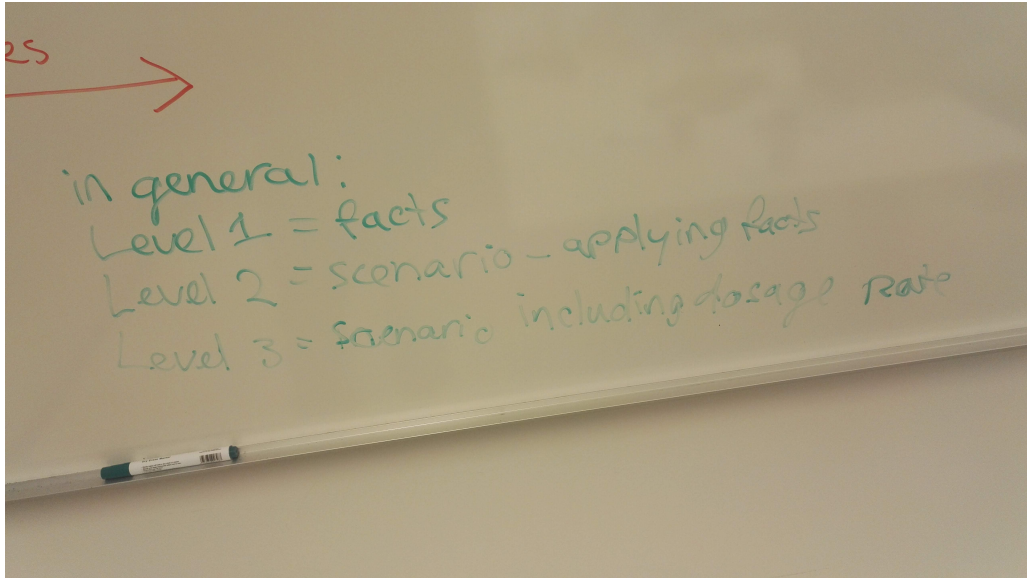 es
in general:
Level 1 = facts
Level 2 = scenario - applying facts
Level 3 = scenario including dosage Rate